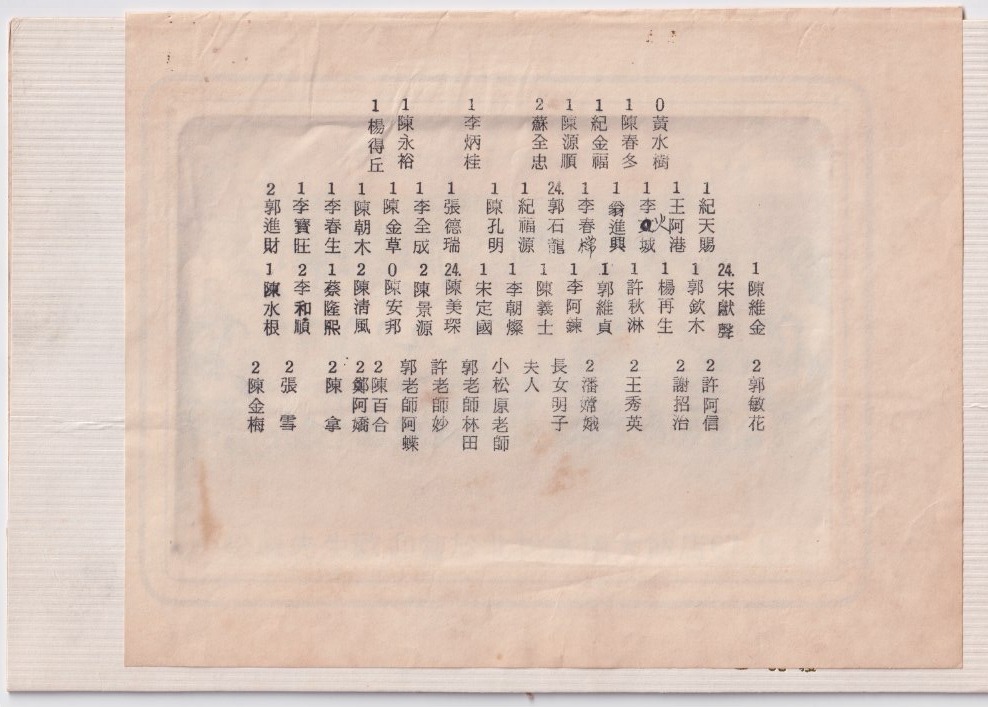 0黃水樹
1陳春多
1紀金福
1陳源順
2蘇全忠
1李炳桂
1陳永裕
1楊得丘
1紀天賜
1王阿港
1李火城
1翁進興
1李春
24.郭石龍
1紀福源
1陳孔明
1張德瑞
1李全成
1陳金草
1陳朝木
1李春生
1李寶旺
2郭進財
1陳維金
24.宋獻聲
1郭欽木
1楊再生
1許秋淋
1郭維貞
1李阿鍊
1陳義士
1李朝燦
1宋定國
24.陳美琛
2陳景源
0陳安邦
2陳清風
1蔡隆熙
2李和順
1陳水根
2郭敏花
2許阿信
2謝招治
2王秀英
2潘嫦娥
長女明子
夫人
小松原老師
郭老師林田
許老師妙
郭老師阿蝶
2陳百合
2鄭阿嬌
2陳 拿
2張 雪
2陳金梅